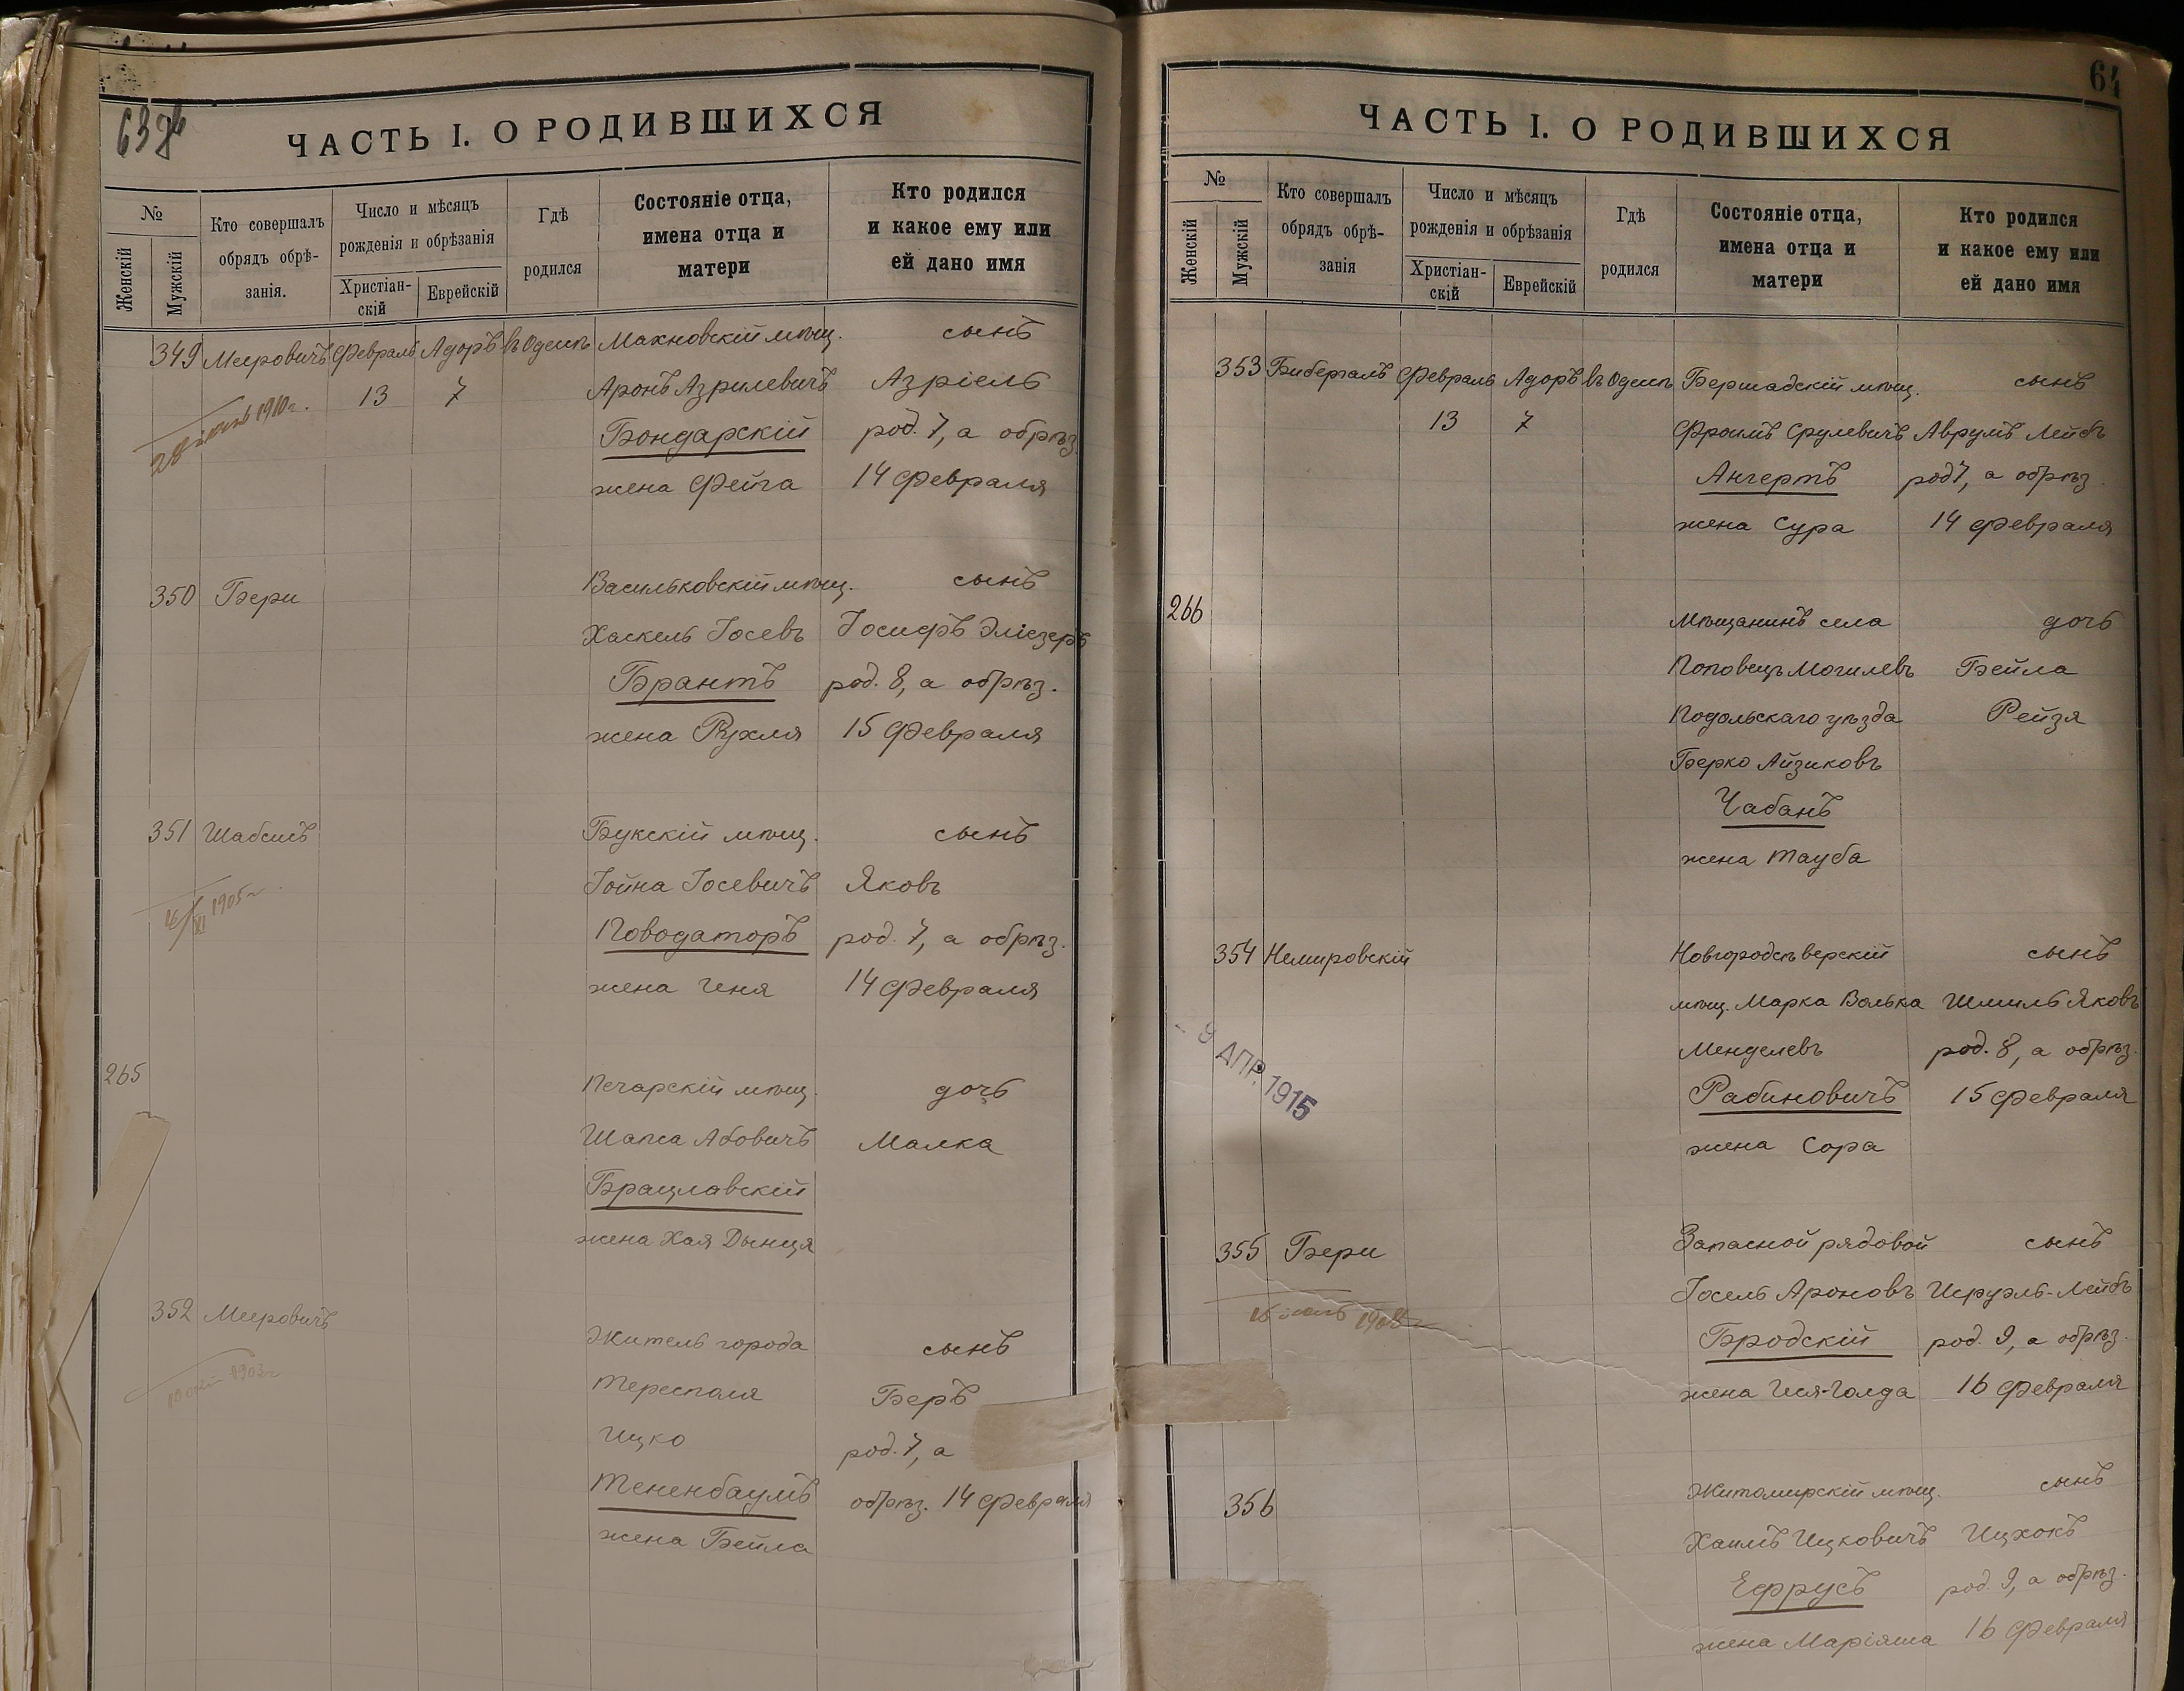 63об
ЧАСТЬ I. О РОДИВШИХСЯ
№
Женскій
Мужскій
Кто совершалъ
обрядъ обрѣ-
занія.
Число и мѣсяцъ
рожденія и обрѣзанія
Христіан-
скій
Еврейскій
Гдѣ
родился
Состояніе отца,
имена отца и
матери
Кто родился
и какое ему или
ей дано имя
349 Мееровичъ Февраль Адоръ въ Одессѣ Махновскій мѣщ. сынъ
13 7 Аронъ Азрилевичъ Азріель
1910 г. Бондарскій род. 7, а обрѣз.
жена Фейга 14 Февраля
350 Бери Васильковскій мѣщ. сынъ
Хаскель Іосевъ Іосифъ Эліезеръ
Брантъ род. 8, а обрѣз.
жена Рухля 15 Февраля
351 Шабсисъ Букскій мѣщ. сынъ
Іойна Іосевичъ Яковъ
16/XI 1905 г. Поводаторъ род. 7, а обрѣз.
жена Геня 14 Февраля
265 Печарскій мѣщ. дочь
Шапса Абовичъ Малка
Брацлавскій
жена Хая Дынця
352 Мееровичъ
Житель города сынъ
1903 г. Тересполя Беръ
Ицко род. 7, а
Тененбаумъ обрѣз. 14 Февраля
жена Бейла
64
ЧАСТЬ I. О РОДИВШИХСЯ
№
Женскій
Мужскій
Кто совершалъ
обрядъ обрѣ-
занія
Число и мѣсяцъ
рожденія и обрѣзанія
Христіан-
скій
Еврейскій
Гдѣ
родился
Состояніе отца,
имена отца и
матери
Кто родился
и какое ему или
ей дано имя
353 Бибергалъ Февраль Адоръ въ Одессѣ Бершадскій мѣщ. сынъ
13 7 Фроимъ Срулевичъ Аврумъ Лейбъ
Ангертъ род 7, а обрѣз.
жена Сура 14 Февраля
266 Мѣщанинъ села дочь
Поповецъ Могилевъ Бейла
Подольскаго уѣзда Рейзя
Берко Айзиковъ
Чабанъ
жена Тауба
354 Немировскій Новгородсѣверскій сынъ
мѣщ. Марка Волька Шмиль Яковъ
Менделевъ род. 8, а обрѣз.
- 9 АПР. 1915
Рабиновичъ 15 Февраля
жена Сора
355 Бери Запасной рядовой сынъ
Іосель Ароновъ Исруэль-Лейбъ
Бродскій род. 9, а обрѣз.
жена Ися-Голда 16 Февраля
356 Житомирскій мѣщ. сынъ
Хаимъ Ицковичъ Ицхокъ
Ефрусъ род. 9, а обрѣз.
жена Маріяша 16 Февраля